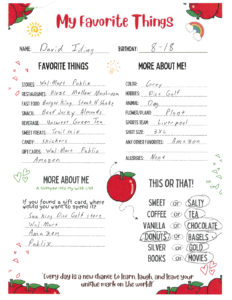 My Favorite Things
NAME: David BIRTHDAY: 8-18
FAVORITE THINGS
STORES: Wal-Mart Publix
RESTAURANTS: Mellow Mushroom
FAST FOOD: Burger King, Steak N Shake
SNACK: Beef Jerky, Almonds
BEVERAGE: Unsweet Green Tea
SWEET TREATS: Trail mix
CANDY: snickers
GIFT CARDS: Wal-Mart Publix
Amazon
MORE ABOUT ME!
COLOR: Grey
HOBBIES: Disc Golf
ANIMAL: Dog
FLOWER/PLANT: Plant
SPORTS TEAM: Liverpool
SHIRT SIZE: 3XL
ANY OTHER FAVORITES: Amazon
ALLERGIES: None
MORE ABOUT ME
A GLIMPSE INTO MY WISH LIST
If you found a gift card, where
would you want to spend it?
Disc Golf store
Wal Mart
Amazon
Publix
THIS OR THAT!
SWEET or SALTY
COFFEE or TEA
VANILLA or CHOCOLATE
DONUTS or BAGELS
SILVER or GOLD
BOOKS or MOVIES
Every day is a new chance to learn, laugh, and leave your
unique mark on the world!